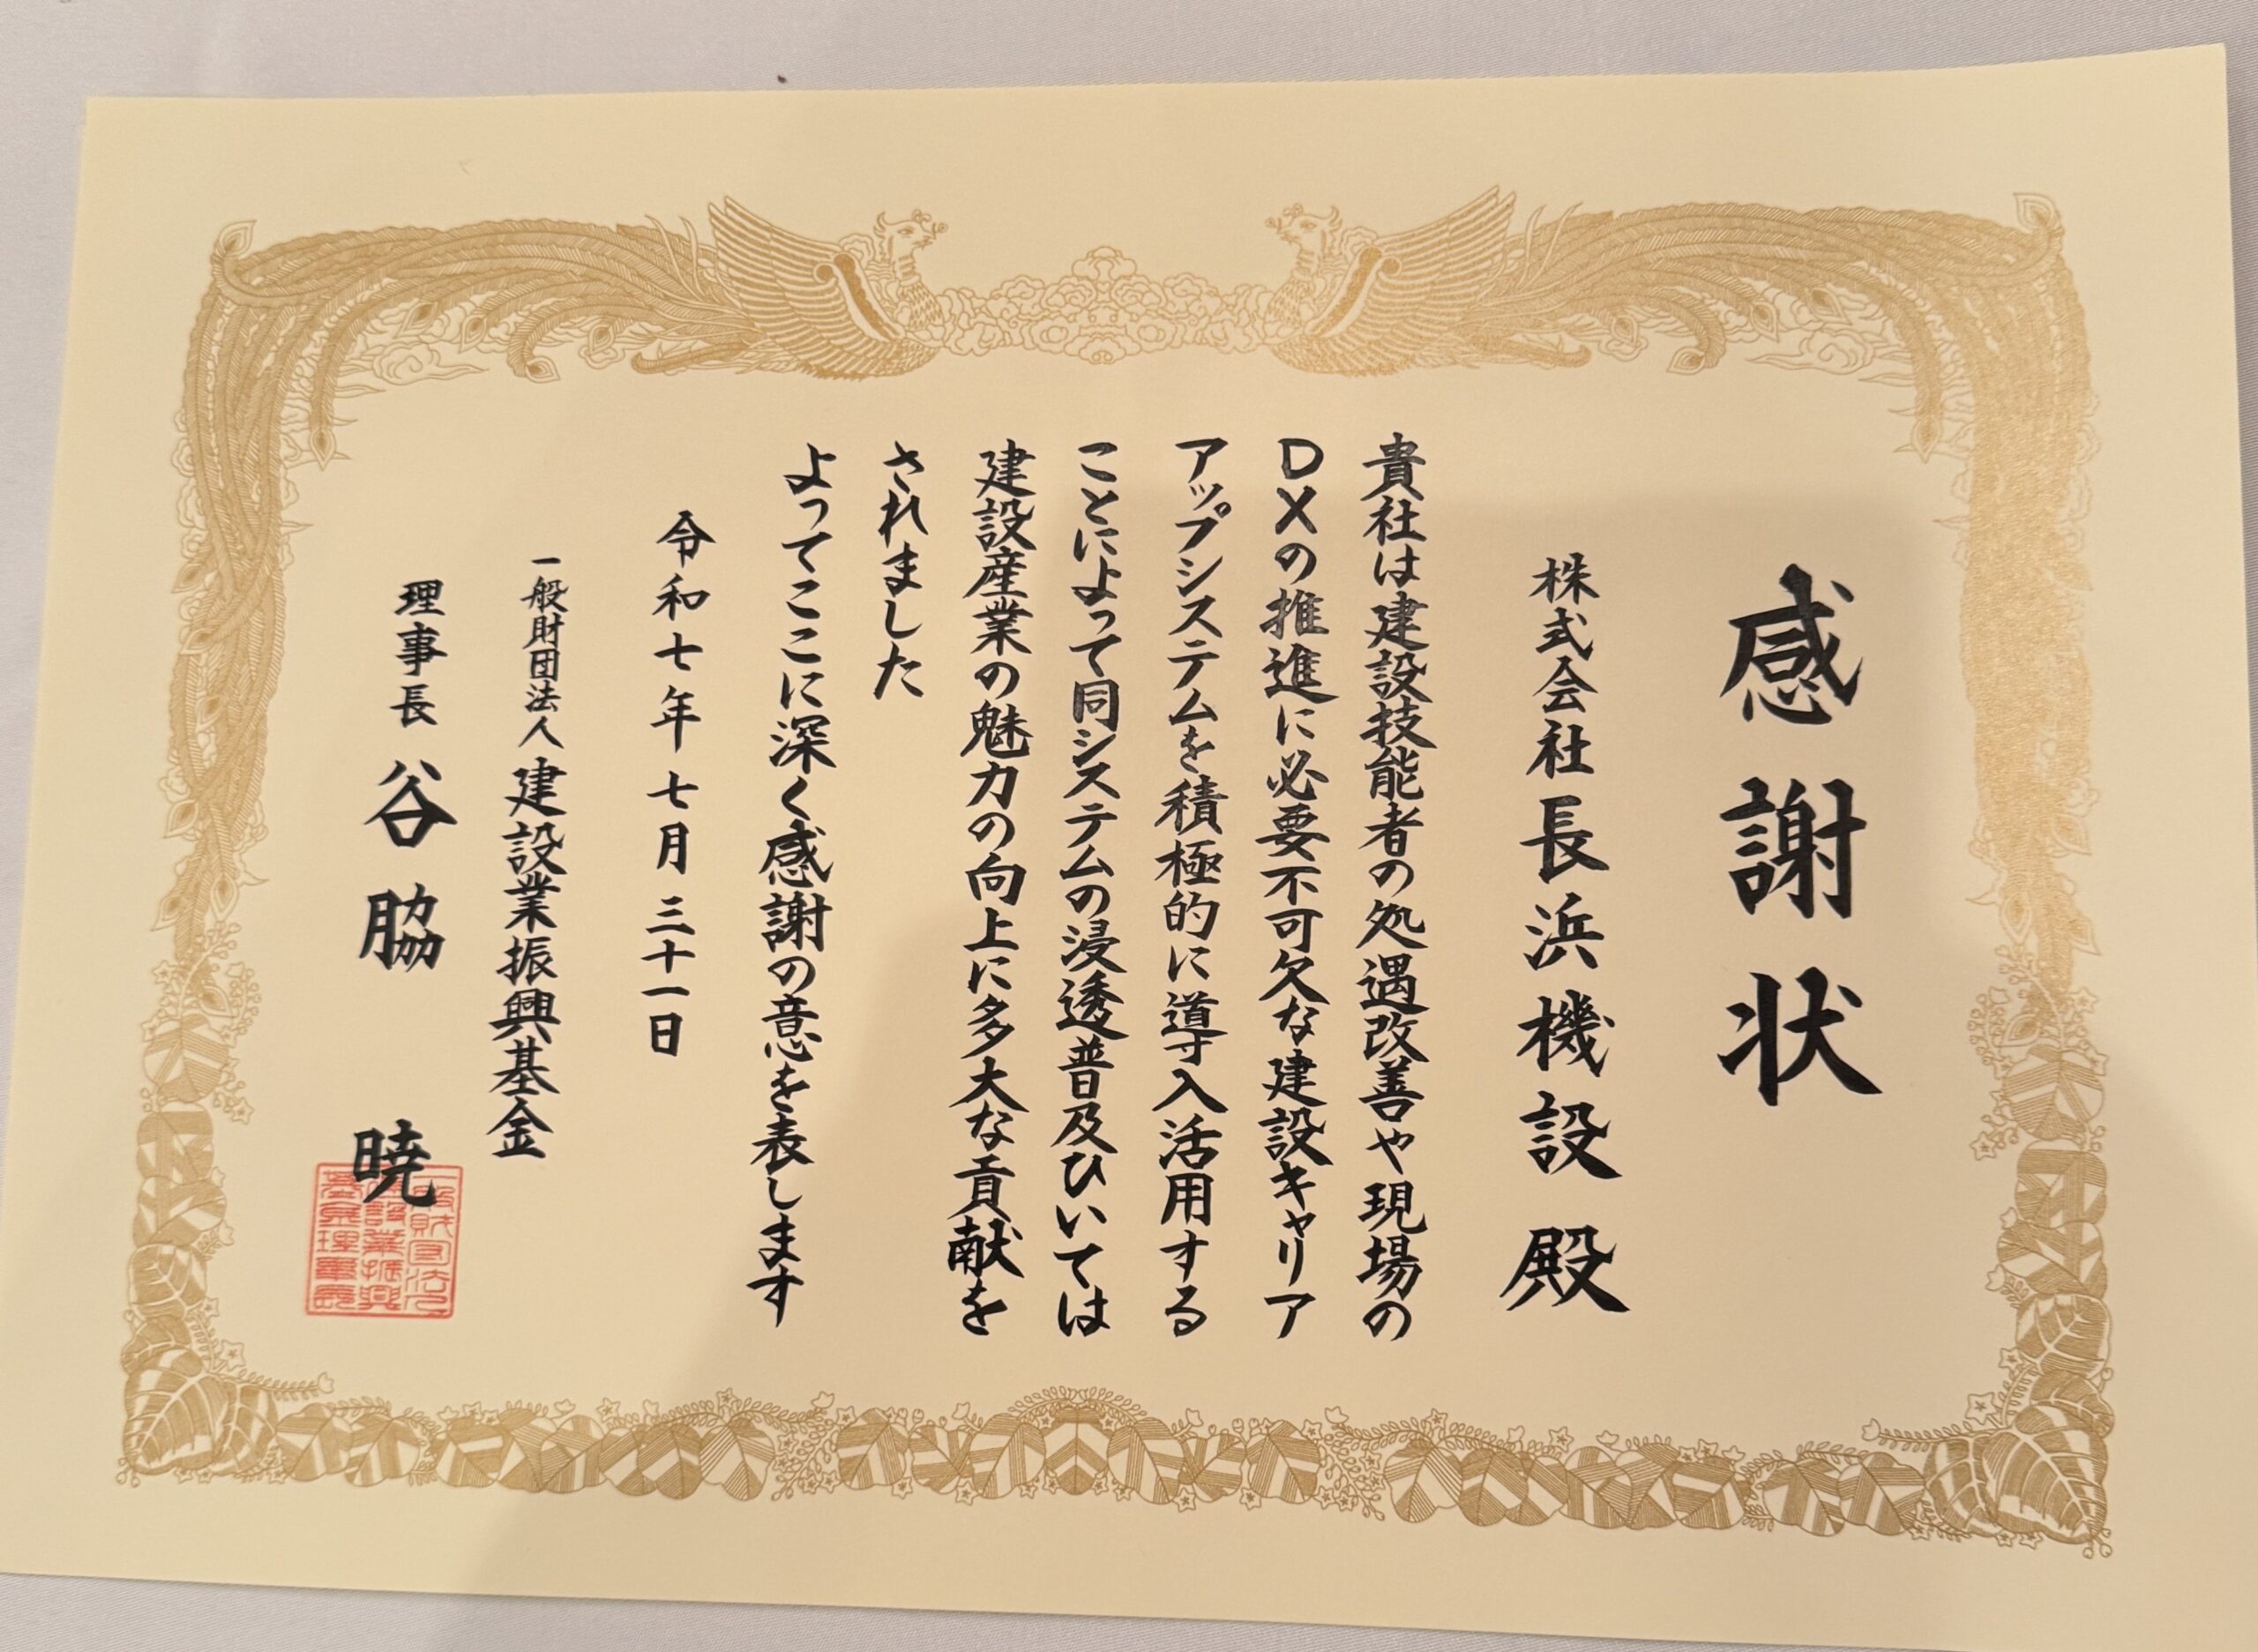 感謝状
株式会社長浜機設殿
貴社は建設技能者の処遇改善や現場の
DXの推進に必要不可欠な建設キャリア
アップシステムを積極的に導入活用する
ことによって同システムの浸透普及ひいては
建設産業の魅力の向上に多大な貢献を
されました
よってここに深く感謝の意を表します
令和七年七月三十一日
一般財団法人建設業振興基金
理事長谷脇暁
一般財団法人
建設業振興
基金理事長